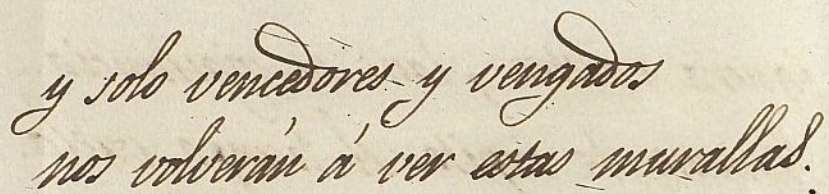 y solo vencedores y vengados
nos volverán á ver estas murallas.